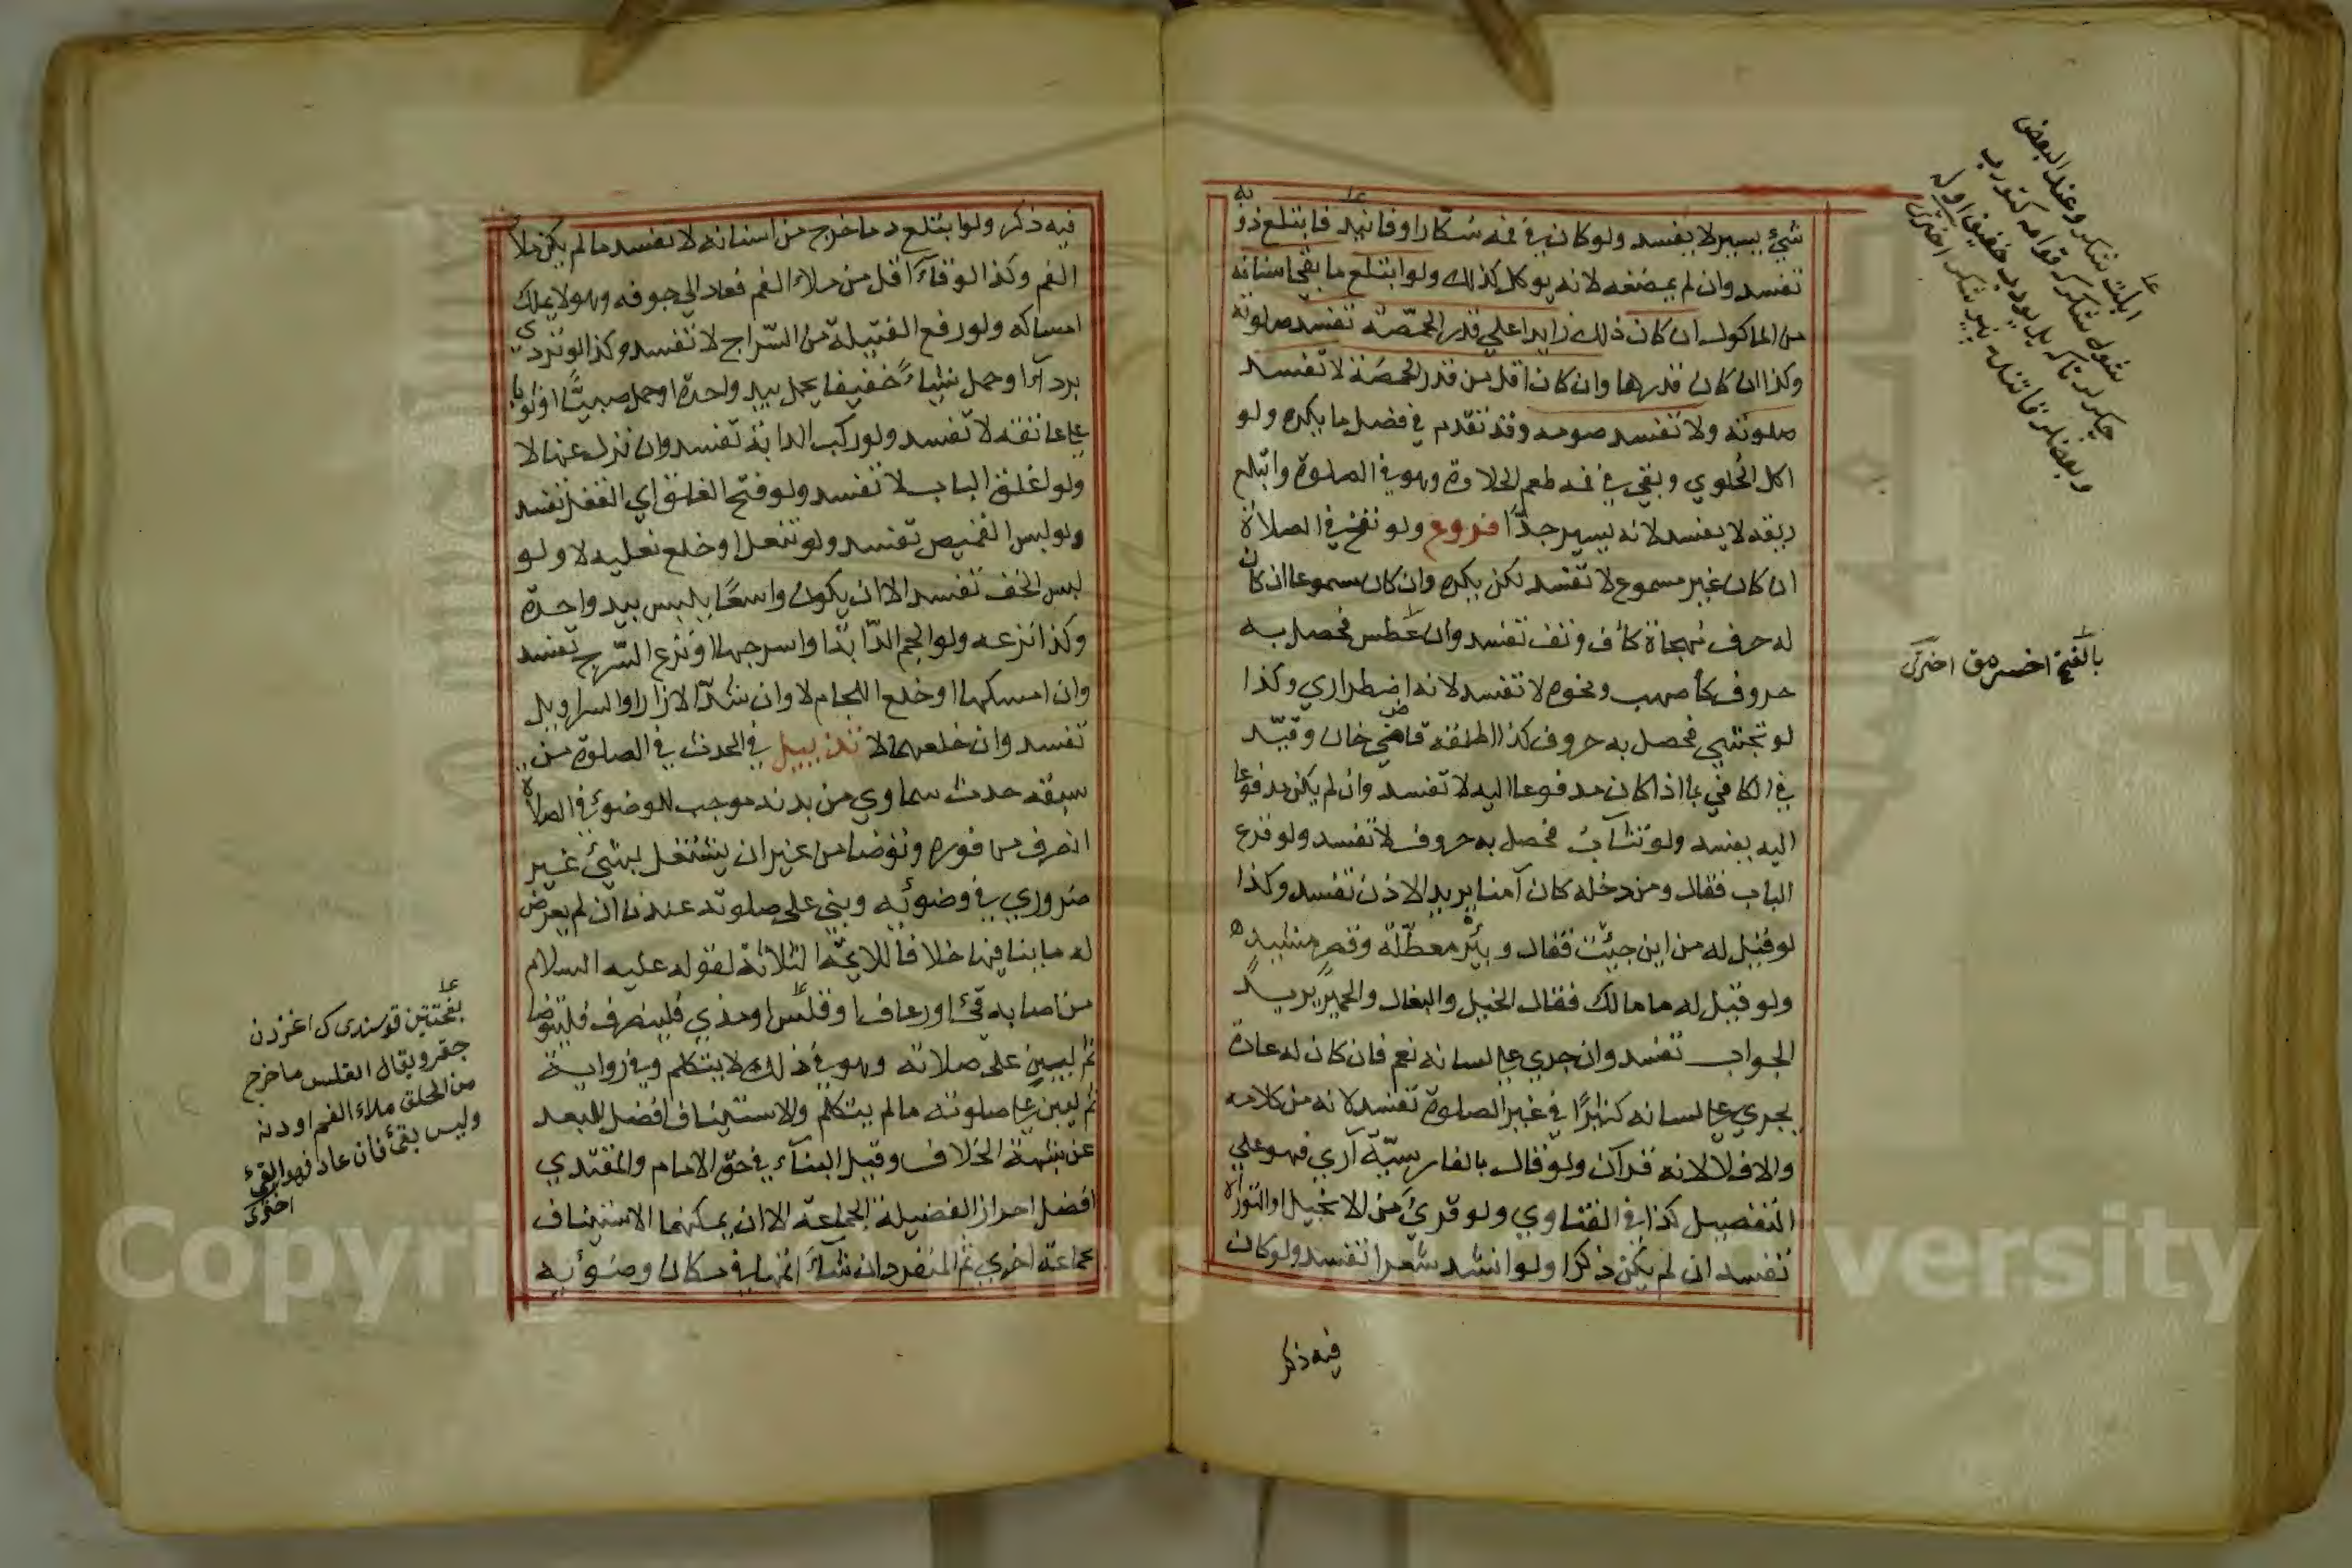 شيئ يسير لا يفسد ولو كان في فمه سكرا او فانيد فابتلع ذوبه
تفسد وان لم يمضغه لانه يوكل كذلك ولو ابتلع ما بقي اسنانه
من الماكول ان كان ذلك زايدا على قدر الحمّصة تفسد صلوته
وكذا ان كان قدرها وان كان اقل من قدر الحمّصة لا تفسد
صلوته ولا تفسد صومه وقد تقدم في فصل ما يكره ولو
اكل الحلوي وبقي في فمه طعم الحلاوة وهو في الصلوة وابتلع
ريقه لا يفسد لانه يسير جدّا فروع ولو نفخ في الصلاة
ان كان غير مسموع لا تفسد لكن يكره وان كان مسموعا ان كان
له حرف مهجاة كأف وتف تفسد وان عطس فحصل به
حروف كأصهب ونحوه لا تفسد لانه اضطراري وكذا
لو تجشي فحصل به حروف كذا اطلقه قاضي خان وقيّد
في الكافي بما اذا كان مدفوعا اليه لا تفسد وان لم يكن مدفوعا
اليه يفسد ولو تثآب فحصل به حروف لا تفسد ولو قرع
الباب فقال ومن دخله كان آمنا يريد الاذن تفسد وكذا
لو قيل له من اين جيئت فقال وبئر معطّلة وقصر مشيد
ولو قيل له ما مالك فقال الخيل والبغال والحمير يريد
الجواب تفسد وان جري علي لسانه نعم فان كان له عادة
يجري علي لسانه كثيرًا في غير الصلوة تفسد لانه من كلامه
والا فلا لانه قرآن ولو قال بالفارسيّة آري فهو علي
التفصيل كذا في الفتاوي ولو قرئ من الانجيل او التوراة
تفسد ان لم يكن ذكرا ولو انشد شعرا تفسد ولو كان
فيه ذكر
بالفتح اخسرمق اختري
فيه ذكر ولو ابتلع دما خرج من اسنانه لا تفسد ما لم يكن ملأ
الفم وكذا لو قآء اقل من ملاء الفم فعاد الي جوفه وهو لا يملك
امساكه ولو رفع الفتيلة من السّراج لا تفسد وكذا لو تردي
بردآء او حمل شيئاً خفيفا يحمل بيد واحدة او حمل صبيّا او ثوبا
علي عاتقه لا تفسد ولو ركب الدابة تفسد وان نزل عنها لا
ولو اغلق الباب لا تفسد ولو فتح الغلق اي القفل تفسد
ولو لبس القميص تفسد ولو تنعل او خلع نعليه لا ولو
لبس الخف تفسد الا ان يكون واسعًا يلبس بيد واحدة
وكذا نزعه ولو الجم الدّابّة او اسرجها او نزع السّرج تفسد
وان امسكها او خلع اللجام لا وان شدّ الازار او السراويل
تفسد وان خلعهما لا تذييل في الحدث في الصلوة من
سبقه حدث سماوي من بدنه موجب للوضوئ في الصلاة
انصرف من فوره وتوضا من غير ان يشتغل بشيئ غير
ضروري في وضوئه وبني على صلوته عندنا ان لم يعرض
له ما ينافيها خلافًا للائمّة الثلاثة لقوله عليه السلام
من اصابه قئ او رعاف او قلس او مذي فلينصرف فليتوضا
ثم ليبن على صلاته وهو في ذلك لا يتكلم وفي رواية
ثم ليبن علي صلوته ما لم يتكلم والاستيناف افضل للبعد
عن شبهة الخلاف وقيل البنآء في حق الامام والمقتدي
افضل احراز الفضيلة الجماعة الا ان يمكنهما الاستيناف
بجماعة اخري ثم المنفرد ان شآء اتمها في مكان وضوئه
بفتحتين قوسندي ك اغزدن
جقر ويقال القلس ما خرج
من الحلق ملاء الفم او دنه
وليس بقئ فان عاد فهو القئ
اختري
Copyright © King Saud University